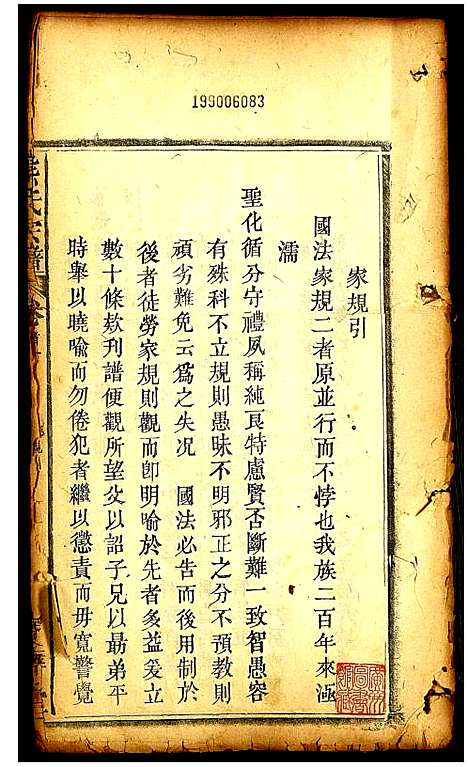 199006083
家規引
國法家規二者原並行而不悖也我族二百年來涵
濡
聖化循分守禮夙稱純良特慮賢否斷難一致智愚容
有殊科不立規則愚昧不明邪正之分不預教則
頑劣難免云爲之失况　國法必告而後用制於
後者徒勞家規則觀而卽明喻於先者多益爰立
數十條欵刊譜便觀所望父以詔子兄以勗弟平
時舉以曉喻而勿倦犯者繼以懲責而毋寬警覺
氏宗譜 卷首